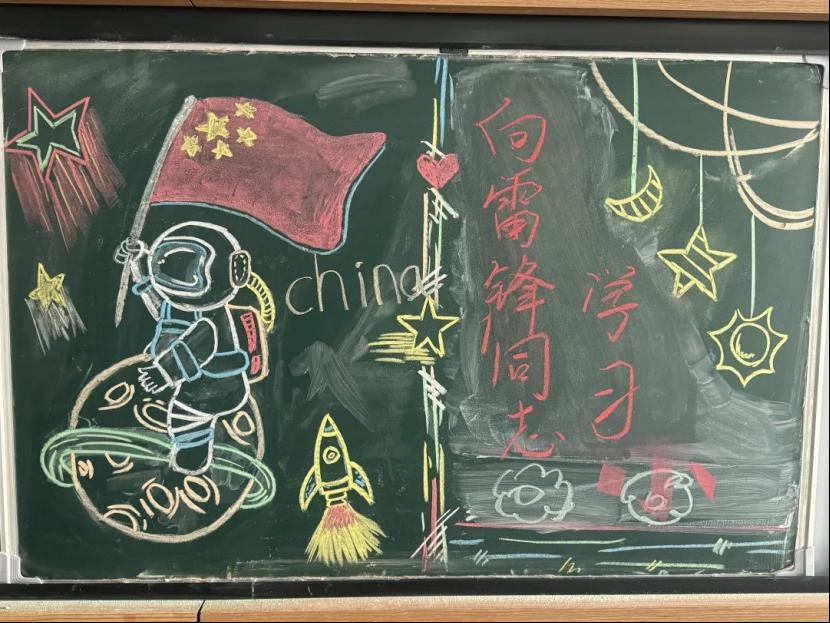 china
向雷锋同志
学习